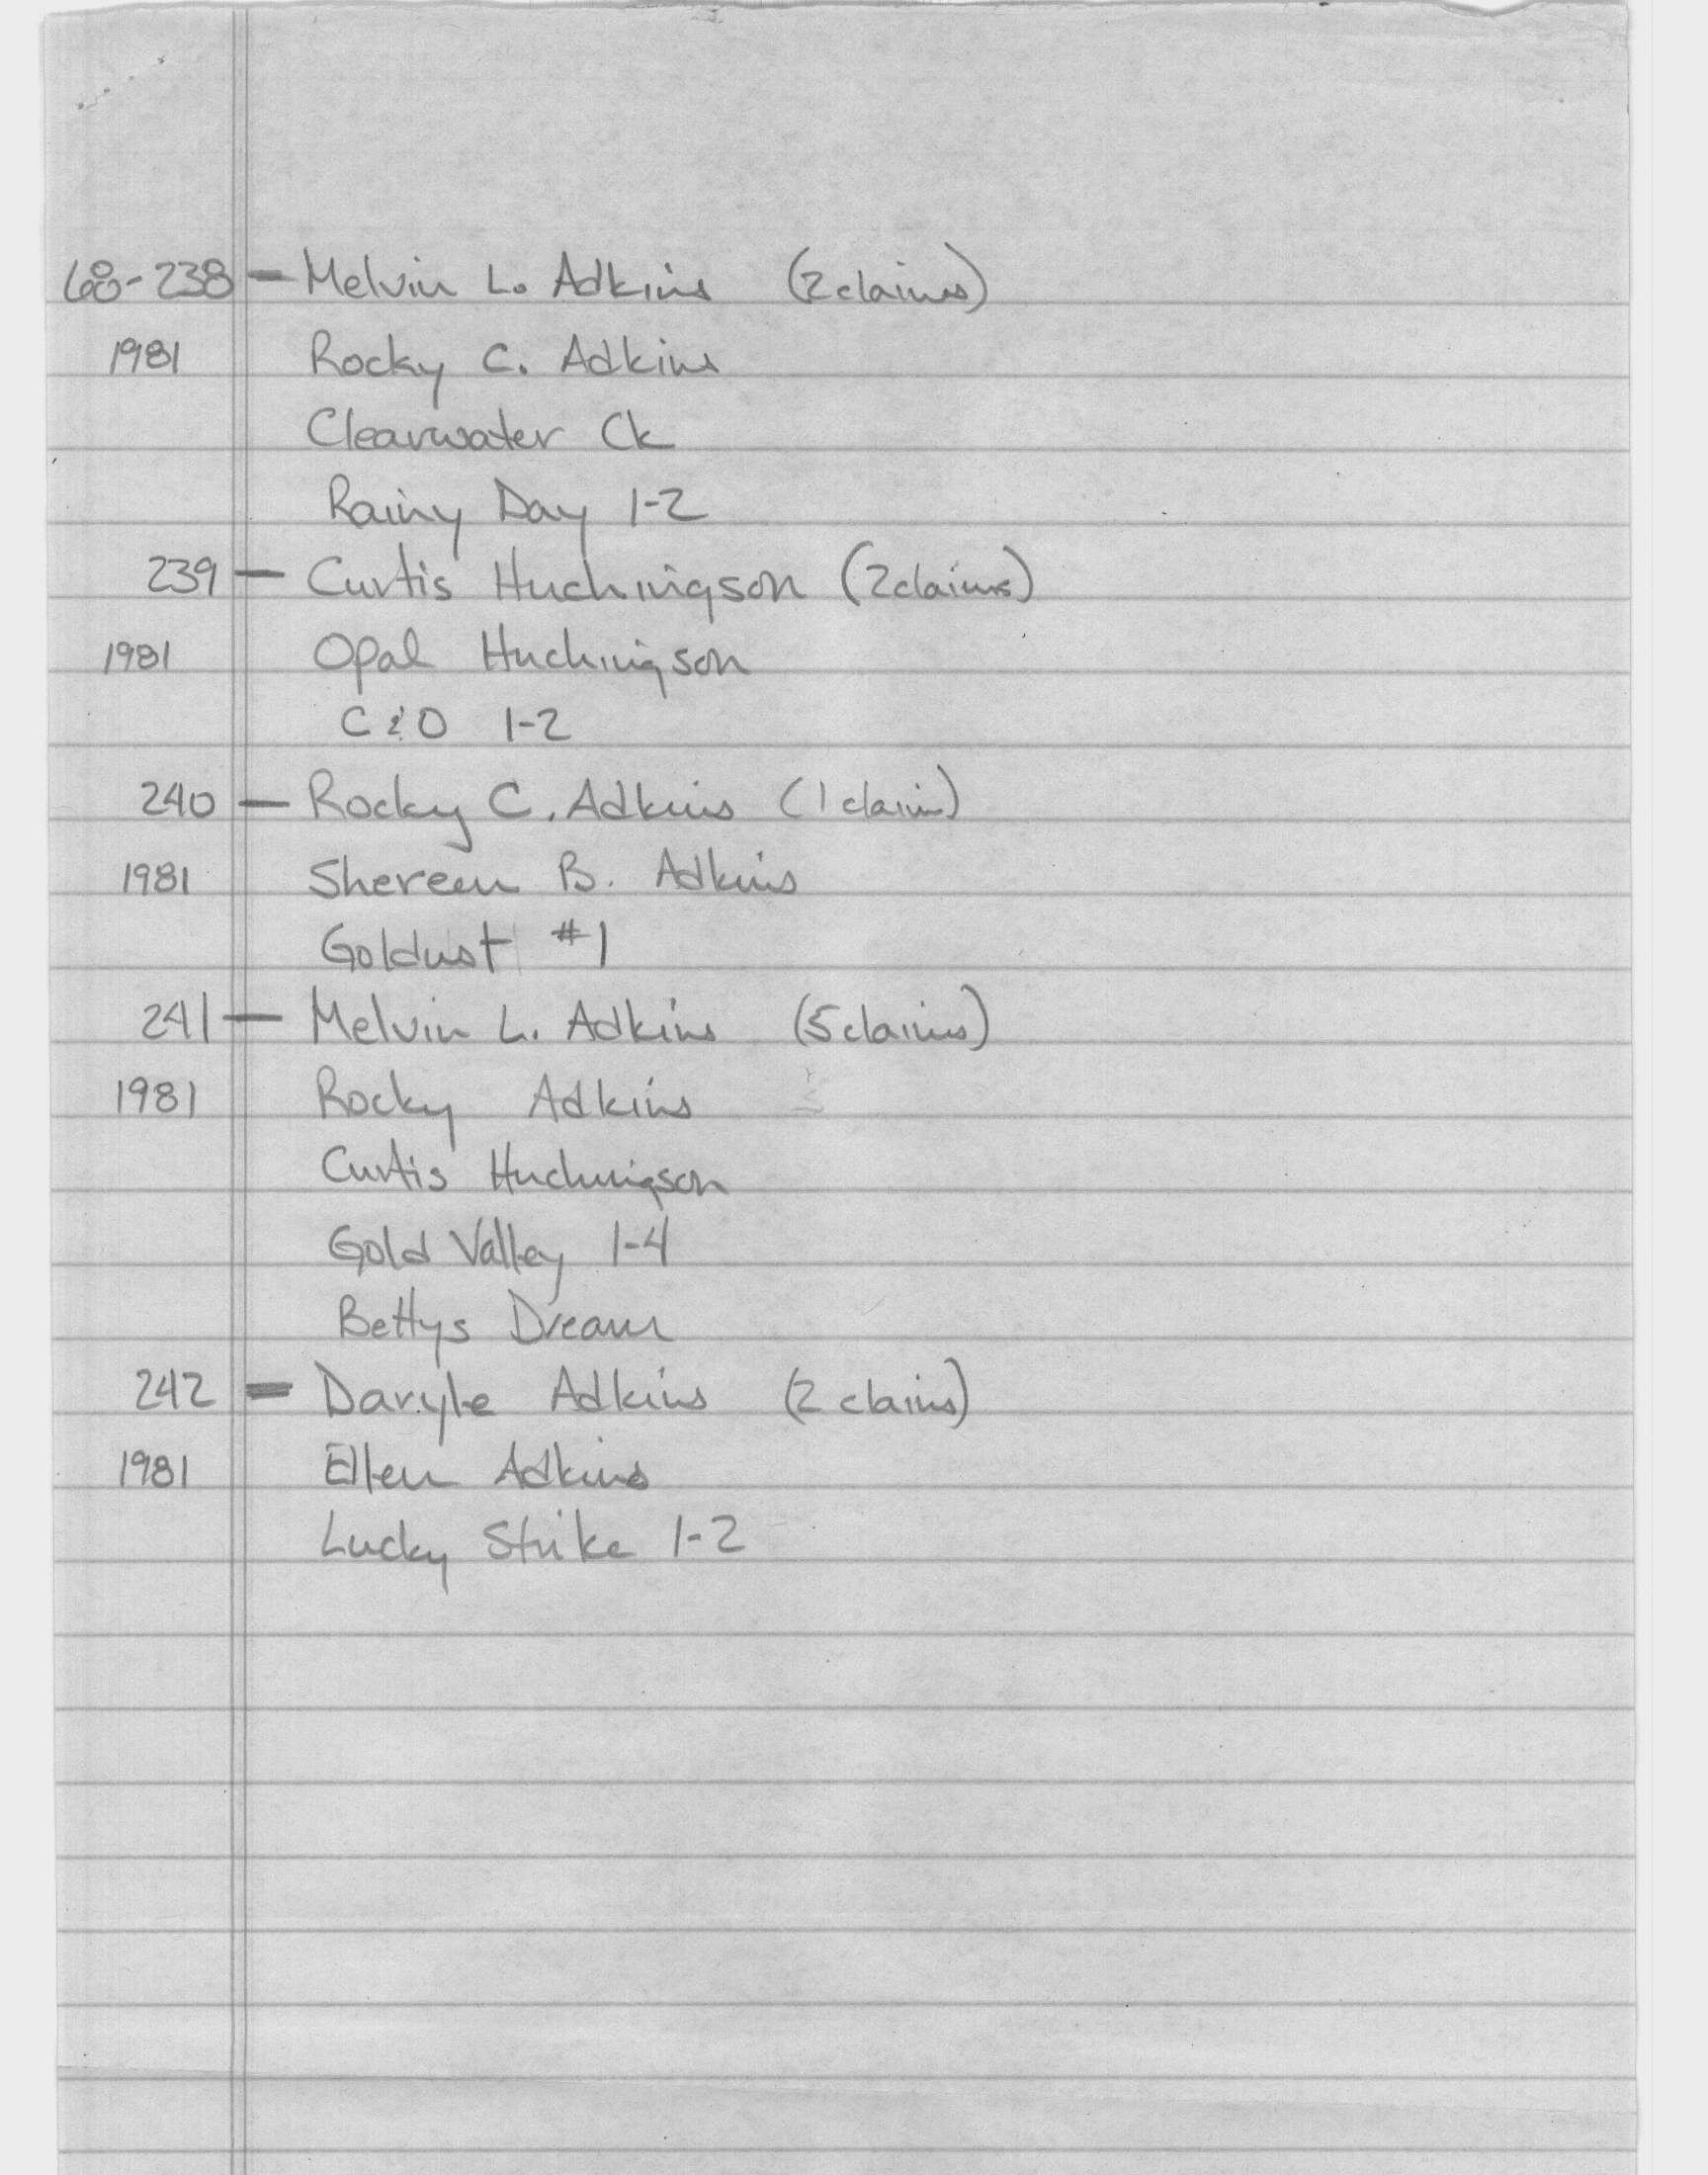 68-238 — Melvin L. Adkins (2 claims)
1981 Rocky C. Adkins
Clearwater Ck
Rainy Day 1-2
239 — Curtis Huchingson (2 claims)
1981 Opal Huchingson
C & O 1-2
240 — Rocky C. Adkins (1 claim)
1981 Shereen B. Adkins
Goldust #1
241 — Melvin L. Adkins (5 claims)
1981 Rocky Adkins
Curtis Huchingson
Gold Valley 1-4
Bettys Dream
242 — Daryle Adkins (2 claims)
1981 Ellen Adkins
Lucky Strike 1-2